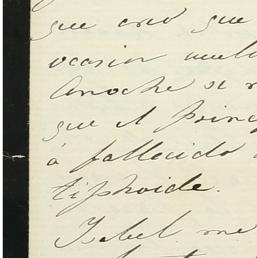 que creo que
ocasion
Anoche se r
que el Princ
á fallecido
tiphoide.
Isabel me